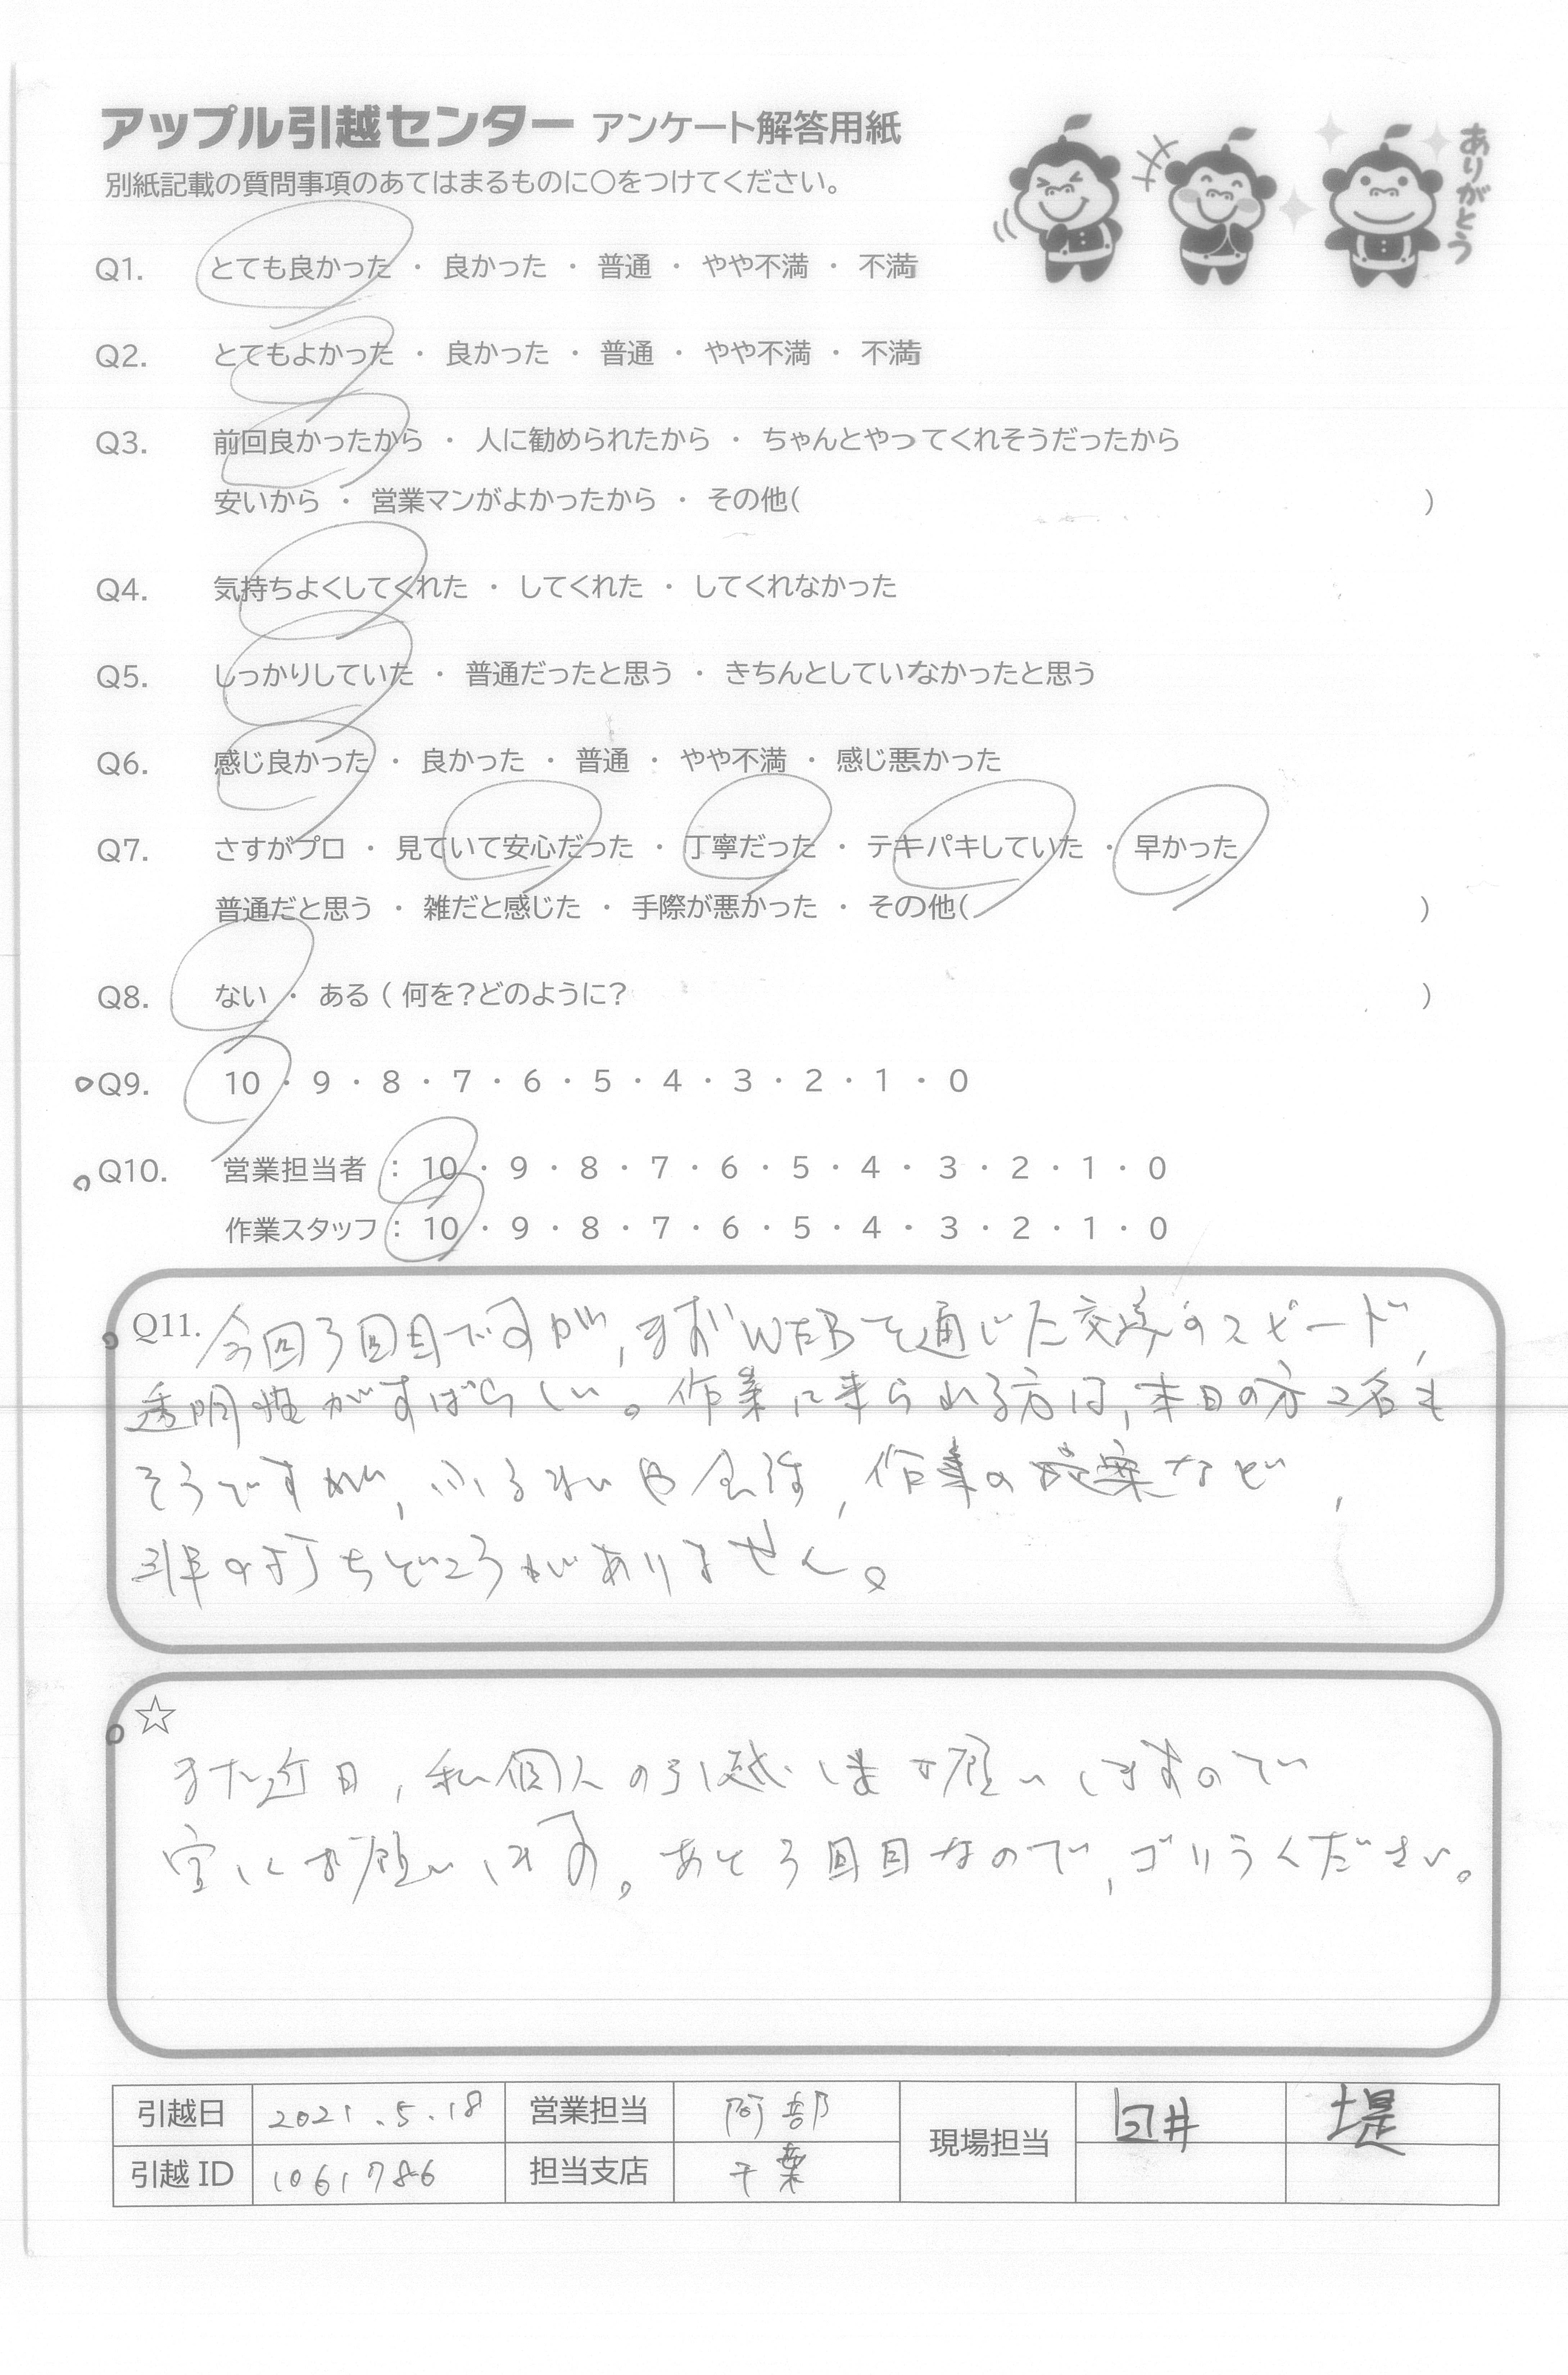 アップル引越センター アンケート解答用紙
ありがとう
別紙記載の質問事項のあてはまるものに○をつけてください。
Q1. とても良かった ・ 良かった ・ 普通 ・ やや不満 ・ 不満
Q2. とてもよかった ・ 良かった ・ 普通 ・ やや不満 ・ 不満
Q3. 前回良かったから ・ 人に勧められたから ・ ちゃんとやってくれそうだったから
安いから ・ 営業マンがよかったから ・ その他( )
Q4. 気持ちよくしてくれた ・ してくれた ・ してくれなかった
Q5. しっかりしていた ・ 普通だったと思う ・ きちんとしていなかったと思う
Q6. 感じ良かった ・ 良かった ・ 普通 ・ やや不満 ・ 感じ悪かった
Q7. さすがプロ ・ 見ていて安心だった ・ 丁寧だった ・ テキパキしていた ・ 早かった
普通だと思う ・ 雑だと感じた ・ 手際が悪かった ・ その他( )
Q8. ない ・ ある ( 何を?どのように? )
Q9. 10 ・ 9 ・ 8 ・ 7 ・ 6 ・ 5 ・ 4 ・ 3 ・ 2 ・ 1 ・ 0
Q10. 営業担当者 : 10 ・ 9 ・ 8 ・ 7 ・ 6 ・ 5 ・ 4 ・ 3 ・ 2 ・ 1 ・ 0
作業スタッフ : 10 ・ 9 ・ 8 ・ 7 ・ 6 ・ 5 ・ 4 ・ 3 ・ 2 ・ 1 ・ 0
Q11. 今回3回目ですが, まずWEBを通じた交渉のスピード,
透明性がすばらしい。作業に来られる方は, 本日の方2名も
そうですが, ふるまいや会話, 作業の提案など,
非の打ちどころがありません。
☆
また近日, 私個人の引越しをお願いしますので
宜しくお願いします。あと3回目なので, ゴリラください。
引越日 2021.5.18 営業担当 阿部 現場担当 臼井 堤
引越ID 1061786 担当支店 千葉